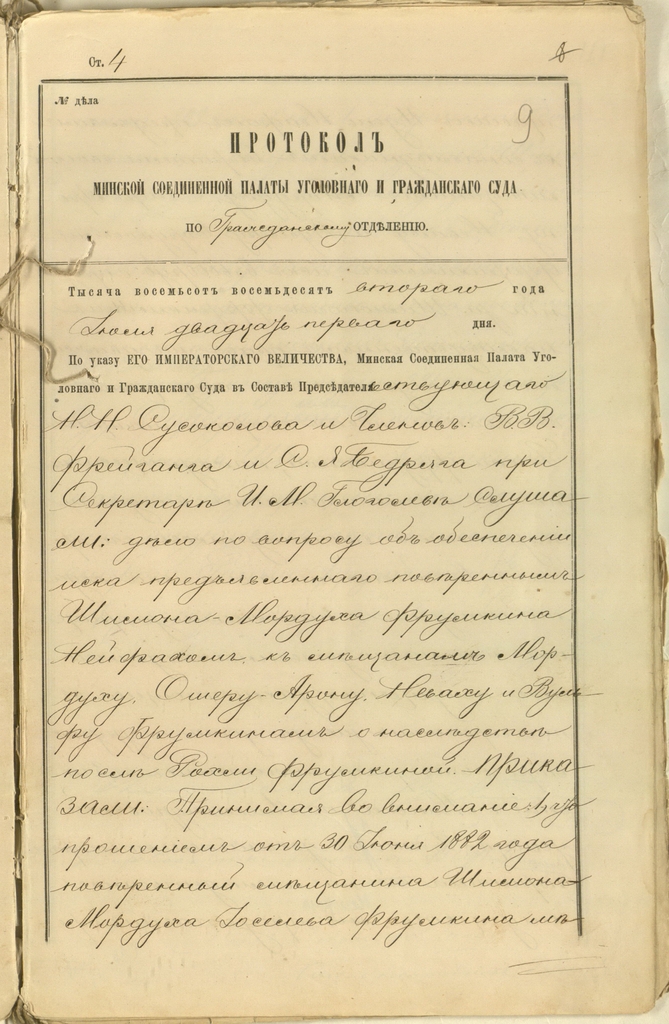 Ст. 4
8
№ дѣла
9
ПРОТОКОЛЪ
МИНСКОЙ СОЕДИНЕННОЙ ПАЛАТЫ УГОЛОВНАГО И ГРАЖДАНСКАГО СУДА
ПО Гражданскому ОТДѢЛЕНІЮ.
Тысяча восемьсотъ восемьдесятъ втораго года
Іюля двадцать перваго дня.
По указу ЕГО ИМПЕРАТОРСКАГО ВЕЛИЧЕСТВА, Минская Соединенная Палата Уго-
ловнаго и Гражданскаго Суда въ Составѣ Предсѣдательствующаго
Н. Н. Сусоколова и Членовъ: В. В.
Фрейганга и С. Я. Бедряга при
Секретарѣ И. М. Глоголевѣ Слуша
ли: дѣло по вопросу объ обеспеченіи
иска предъявленнаго повѣреннымъ
Шимона-Мордуха Фрумкина
Нейфахомъ къ мѣщанамъ Мор-
духу, Ошеру-Арону, Неваху и Вуль-
фу Фрумкинамъ о наслѣдствѣ
послѣ Рохли Фрумкиной. Прика
зали: Принимая во вниманіе: 1, что
прошеніемъ отъ 30 Іюня 1882 года
повѣренный мѣщанина Шимона-
Мордуха Іоселева Фрумкина мѣ-